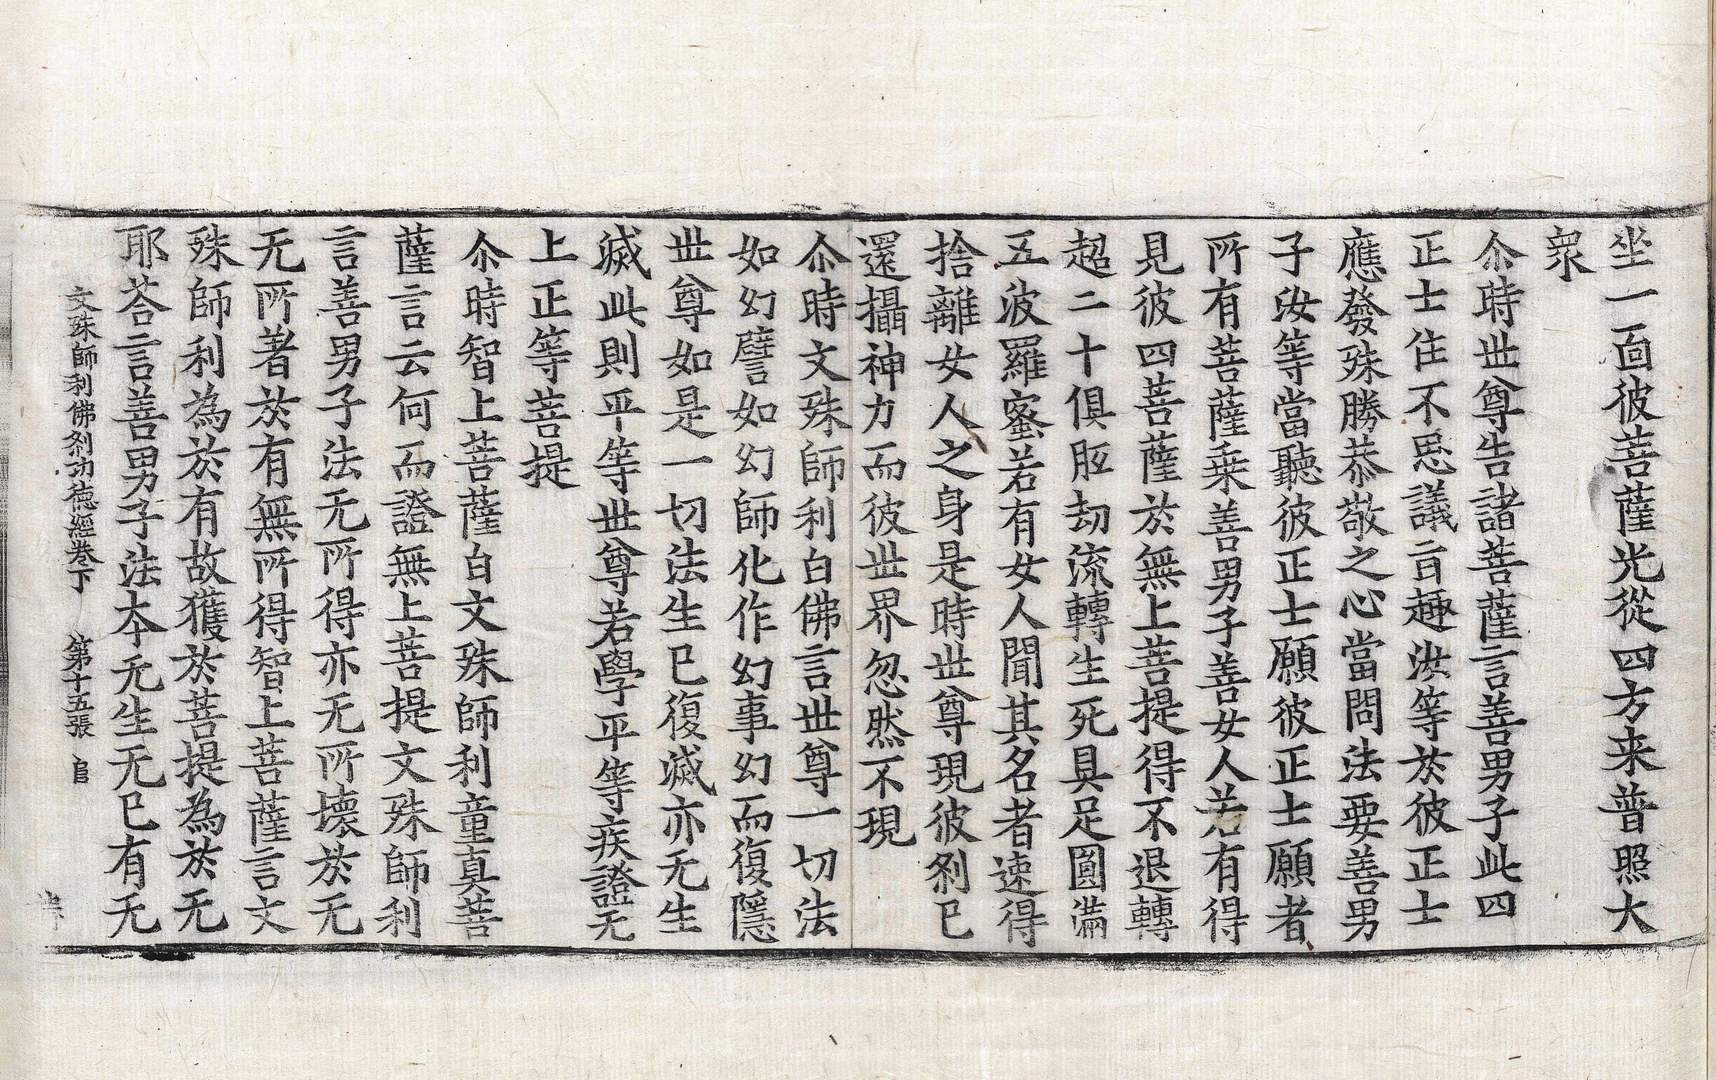 坐一面彼菩薩光從四方来普照大
眾
尒時世尊告諸菩薩言善男子此四
正士住不思議盲趣汝等於彼正士
應發殊勝恭敬之心當問法要善男
子汝等當聽彼正士願彼正士願者
所有菩薩乗善男子善女人若有得
見彼四菩薩於無上菩提得不退轉
超二十俱胝劫流轉生死具足圓滿
五波羅蜜若有女人聞其名者速得
捨離女人之身是時世尊現彼刹已
還攝神力而彼世界忽然不現
尒時文殊師利白佛言世尊一切法
如幻譬如幻師化作幻事幻而復隱
世尊如是一切法生已復滅亦无生
滅此則平等世尊若學平等疾證无
上正等菩提
尒時智上菩薩白文殊師利童真菩
薩言云何而證無上菩提文殊師利
言善男子法无所得亦无所壊於无
无所著於有無所得智上菩薩言文
殊師利為於有故獲於菩提為於无
耶荅言善男子法本无生无已有无
文殊師利佛刹功德經卷下 第十五張 官